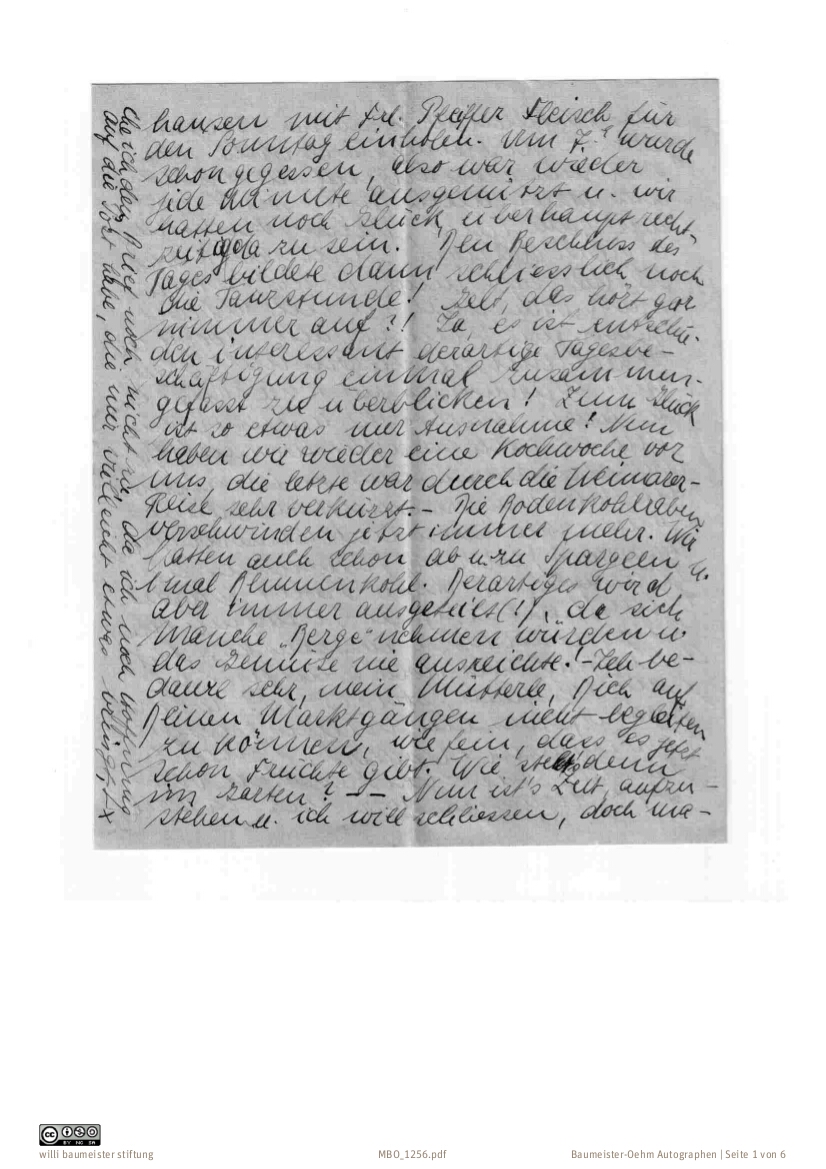 hausen mit Frl. Pfeiffer Fleisch für
den Sonntag einholen. Um 7.ʰ wurde
schon gegessen, also war wieder
jede Minute ausgenützt u. wir
hatten noch Glück, überhaupt recht-
zeitig da zu sein. Den Beschluss des
Tages bildete dann schliesslich noch
die Tanzstunde! Gelt, das hört gar
nimmer auf?! Ja, es ist entschie-
den interessant derartige Tagesbe-
schäftigung einmal zusammen-
gefasst zu überblicken! Zum Glück
ist so etwas nur Ausnahme! Nun
haben wir wieder eine Kochwoche vor
uns, die letzte war durch die Weimarer-
Reise sehr verkürzt. – Die Bodenkohlraben
verschwinden jetzt immer mehr. Wir
hatten auch schon ab u. zu Spargeln u.
1 mal Blumenkohl. Derartiges wird
aber immer ausgeteilt (!), da sich
manche „Berge" nehmen würden u.
das Gemüse nie ausreichte! – Ich be-
daure sehr, mein Mütterle, Dich auf
Deinen Marktgängen nicht begleiten
zu können, wie fein, dass es jetzt
schon Früchte gibt. Wie steht's denn
im Garten? – – Nun ist's Zeit, aufzu-
stehen u. ich will schliessen, doch ma-
che ich den Brief noch nicht zu, da ich noch Hoffnung
auf die Post habe, die mir vielleicht etwas bringt, +x
willi baumeister stiftung
MBO_1256.pdf
Baumeister-Oehm Autographen | Seite 1 von 6
cc BY NC SA